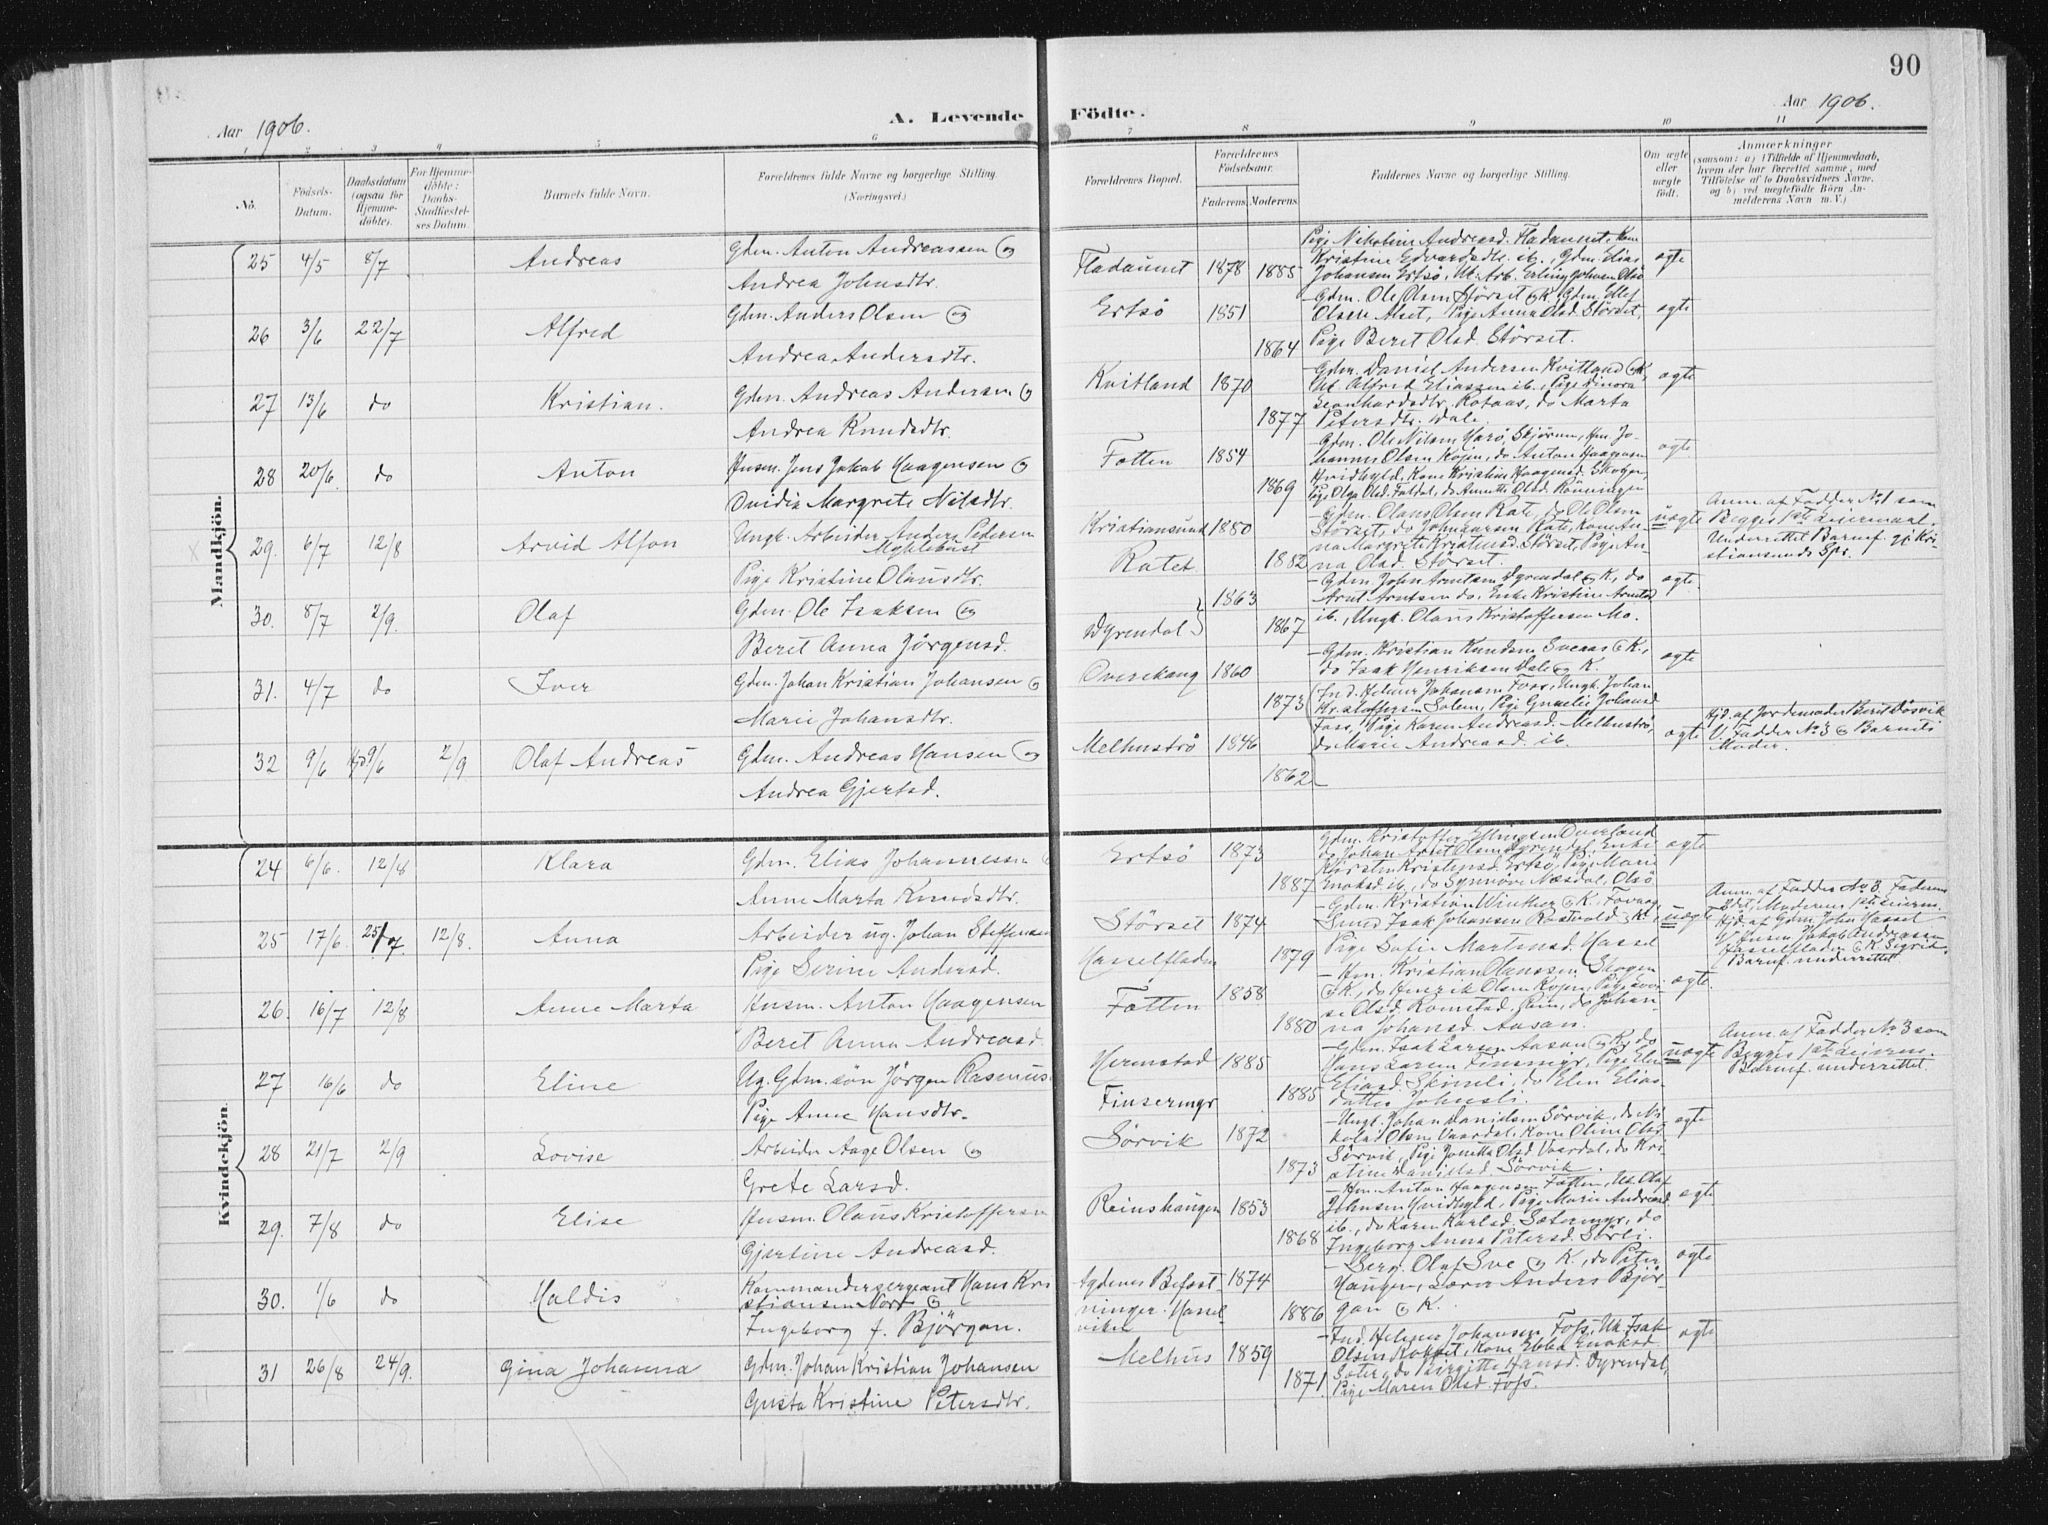 90
Aar 1906.
A. Levende Födte.
Aar 1906.
1 2 3 4 5 6 7 8 9 10 11
No.
Födsels-Datum.
Daabsdatum (ogsaa for Hjemme-döbte).
For Hjemme-döbte: Daabs-Stadfæstel-ses Datum.
Barnets fulde Navn.
Forældrenes fulde Navne og borgerlige Stilling. (Næringsvei.)
Forældrenes Bopæl.
Forældrenes Födselsaar.
Faderens. Moderens.
Faddernes Navne og borgerlige Stilling.
Om ægte eller uægte födt.
Anmærkninger
(saasom: a) i Tilfælde af Hjemmedaab, hvem der har forrettet samme, med Tilföielse af to Daabsvidners Navne, og b) ved uægtefödte Börn Anmelderens Navn m. V.)
Mandkjön.
25 4/5 8/7 Andreas Gdm. Anton Andreassen og
Andrea Johnsdtr.
Fladaunet 1878 1885
Pige Nikoline Andreasd. Fladaunet, Kone
Kristine Edvardsdtr. ib., Gdm. Elias
Johansen Ertsö, Uk. Arb. Erling Johnsen Olsö
ægte
26 3/6 22/7 Alfred Gdm. Anders Olsen og
Andrea Andersdtr.
Ertsö 1851 1864
Gdm. Ole Olsen Störset og K., Gdm. Ellef
Olsen Alset, Pige Anna Olsd. Störset,
Pige Beret Olsd. Störset.
ægte
27 13/6 do Kristian. Gdm. Andreas Andersen og
Andrea Knudsdtr.
Kvitland 1870 1877
Gdm. Daniel Andersen Kvitland og K,
Uk Alfred Eliassen ib., Pige Dinora
Leonhardsdtr. Rotaas, do Marta
Petersdtr. Dale.
ægte
28 20/6. do Anton Husm. Jens Jakob Haagensen og
Ovidia Margrete Nilsdtr.
Fatten 1854 1869
Gdm. Ole Nilsen Harö, Skjörem, Hm. Jo-
hannes Olsen Kojen, do Anton Haagensen
Hvidhyld, Kone Kristine Haagensd. Skogen,
Pige Olga Olsd. Faldal, do Annette Olsd. Rönningen
ægte
29. 6/7 12/8 Arvid Alfon Ungk. Arbeider Anders Pedersen
Myklebust
Pige Kristine Olausdtr.
Kristiansund 1880
Ratet 1882
Gdm. Olaus Olsen Rate, do Ole Olsen
Störset, do John Larsen Rate, Kone An-
na Margrete Kristensd. Störset, Pige An-
na Olsd. Störset.
uægte
Anm. af Fadder No 1 som
Begges 1ste Leiermaal.
Underrettet Barnef. gj. Kri-
stiansunds Spr.
30. 8/7 2/9. Olaf Gdm. Ole Isaksen og
Beret Anna Jörgensd.
Dyrendal 1863 1867
Gdm John Arntsen Dyrendal og K., do
Arnt Arntsen do, Enke Kristine Arntsd
ib., Ungk. Olaus Kristoffersen Mo.
ægte.
31. 4/7 do Iver Gdm. Johan Kristian Johansen og
Marie Johansdtr.
Overskang 1860 1873
Gdm. Kristian Knudsen Sveaas og K.,
do Isak Henriksen Dale og K.
ægte
32 9/6 Hjd. 9/6 2/9 Olaf Andreas Gdm. Andreas Hansen og
Andrea Gjertsd.
Melhuströ 1846 1862
Ind. Helmer Johansen Foss, Ungk. Johan
Kristoffersen Solem, Pige Gunelie Johansd
Foss, Pige Karen Andreasd. Melhuströ,
do Marie Andreasd. ib.
ægte
Hjd. af Jordemoder Beret Dösvik
V. Fadder No 3 og Barnets
Moder.
Kvindekjön.
24 6/6. 12/8 Klara Gdm. Elias Johannessen
Anne Marta Knudsdtr.
Ertsö 1873 1887
Gdm. Kristoffer Ellingsen Overland
do Johan Arnt Olsen Dyrendal, Enke
Kirsten Kristensd. Ertsö, Pige Marie
Enoksd. ib., do Synnöve Næsdal, Olsö
ægte
25 17/6. 25/7. 12/8. Anna Arbeider ug. Johan Steffensen
Pige Serine Andersd.
Störset 1874
Hasselfladen 1879
Gdm. Kristian Winther og K., Forvag,
Smed Isak Johansen Rostvold og K.,
Pige Sofie Martinsd. Hassel
uægte
Anm. af Fadder No 3. Faderens
2det, Moderens 1ste Leierm.
Hjd. af Gdm. John Hassel
V. Husm. Jakob Andreassen
Hasselfladen og K. Sigrid.
Barnef. underrettet
26. 16/7 12/8 Anne Marta Husm. Anton Haagensen
Beret Anna Andreasd.
Fatten 1858 1880
Hm. Kristian Olaussen Skogen
og K., do Henrik Olsen Kojen, Pige Lovi-
se Olsd. Romstad, Rein, do Johan-
na Johansd. Aasan.
ægte.
27 16/6 do Eline Ug. Gdm.sön Jörgen Rasmus.
Pige Anne Hansdtr.
Hermstad 1885
Finsermyr 1885
Gdm. Isak Larsen Aasan og K, do
Hans Larsen Finsmyr, Pige Elen
Eliasd. Skinsli, do Elen Elias-
datter Johnsli.
uægte
Anm. af Fadder No 3 som
Begges 1ste Leierm.
Barnef. underrettet.
28 21/7 2/9 Lovise Arbeider Aage Olsen og
Grete Larsd.
Sörvik 1872 1873
Ungk. Johan Danielsen Sörvik, do Ni-
kolai Olsen Vaardal, Kone Oline Olsd.
Sörvik, Pige Jonetta Olsd Vaardal, do Kri-
stine Danielsd Sörvik.
ægte
29. 7/8 do Elise Husm. Olaus Kristoffersen
Gjertine Andreasd.
Reinshaugen 1853 1868
Hm. Anton Haagensen Fatten, Uk. Olaf
Johnsen Hvidhyld, Pige Marie Andreasd.
ib., do Karen Karlsd. Sætermyr, do
Ingeborg Anna Petersd. Sörli.
ægte
30. 1/6 do Haldis Kommandersergeant Hans Kri
stiansen Norr og
Ingeborg f. Björgan.
Agdenes Befæst-
ninger. Hassel-
viken
1874 1886
Serg. Olaf Sve og K., do Peter
Haugen, Lærer Anders Björ-
gan og K.
ægte
31 26/8 24/9. Gina Johanna Gdm. Johan Kristian Johansen
Gusta Kristine Petersdtr.
Melhus 1859 1871
Ind. Helmer Johansen Foss, Uk Isak
Olsen, Kone Ebba Enoksd.
Sæter, do Birgitte Hansd. Dyrendal,
Pige Maren Olsd. Foss.
ægte